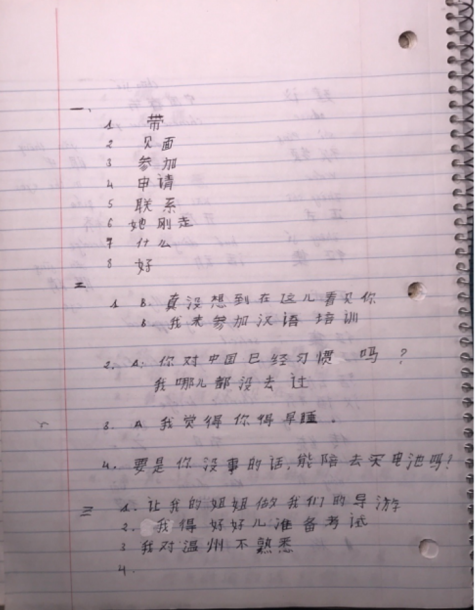 一、
1 带
2 见面
3 参加
4 申请
5 联系
6 她刚走
7 什么
8 好
二
1 B. 真没想到在这儿看见你
B 我来参加汉语培训
2. A: 你对中国已经习惯 吗?
我哪儿都没去过
3. A 我觉得你得早睡。
4. 要是你没事的话,能陪去买电池吗?
三 1. 让我的姐姐做我们的导游
2. 我得好好儿准备考试
3 我对温州不熟悉
4.